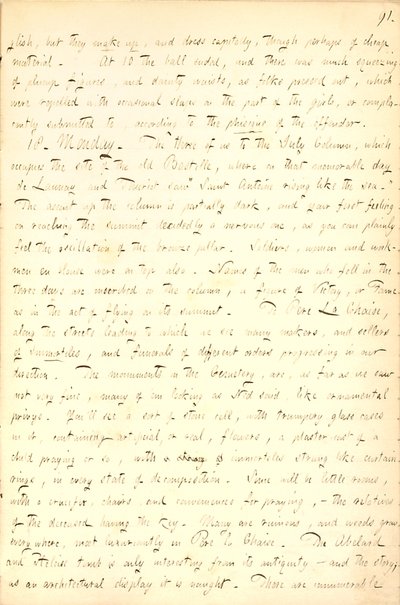 91.
plish, but they make up, and dress capitally, though perhaps of cheap
material. At 10 the ball ended, and there was much squeezing
of plump figures, and dainty waists, as folks pressed out, which
were repelled with occasional slaps on the part of the girls, or compla-
cently submitted to, according to the phisques of the offender.
18. Monday. The three of us to the July Column, which
occupies the site of the old Bastille, where on that memorable day
De Launay and Thuriot saw "Saint Antoine rising like the sea."
The ascent up the column is partially dark, and your first feeling
on reaching the summit decidedly a nervous one, as you can plainly
feel the oscillation of the bronze pillar. Soldiers, women and work-
men en blouse were on top also. Names of the men who fell in the
three days are inscribed on the column, a figure of Victory, or Fame
as in the act of flying on its summit. To Père La Chaise,
along the streets leading to which are many makers, and sellers
of immortelles, and funerals of different orders progressing in our
direction. The monuments in the Cemetery, are, as far as we saw
not very fine, many of em looking as it'd said, like ornamental
privys. You'll see a sort of stone cell, with trumpery glass cases
in it, containing artificial, or real, flowers, a plaster cast of a
child praying or so, with immortelles strung like curtain
rings, in every state of decomposition. Some will be little rooms,
with a crucifix, chairs, and conveniences for praying, – the relatives
of the deceased having the key. Many are ruinous, and weeds grow
everywhere, most luxuriantly in Père La Chaise. The Abelard
and Heloise tomb is only interesting from its antiquity – and the story;
as an architectural display it is nought. There are innumerable